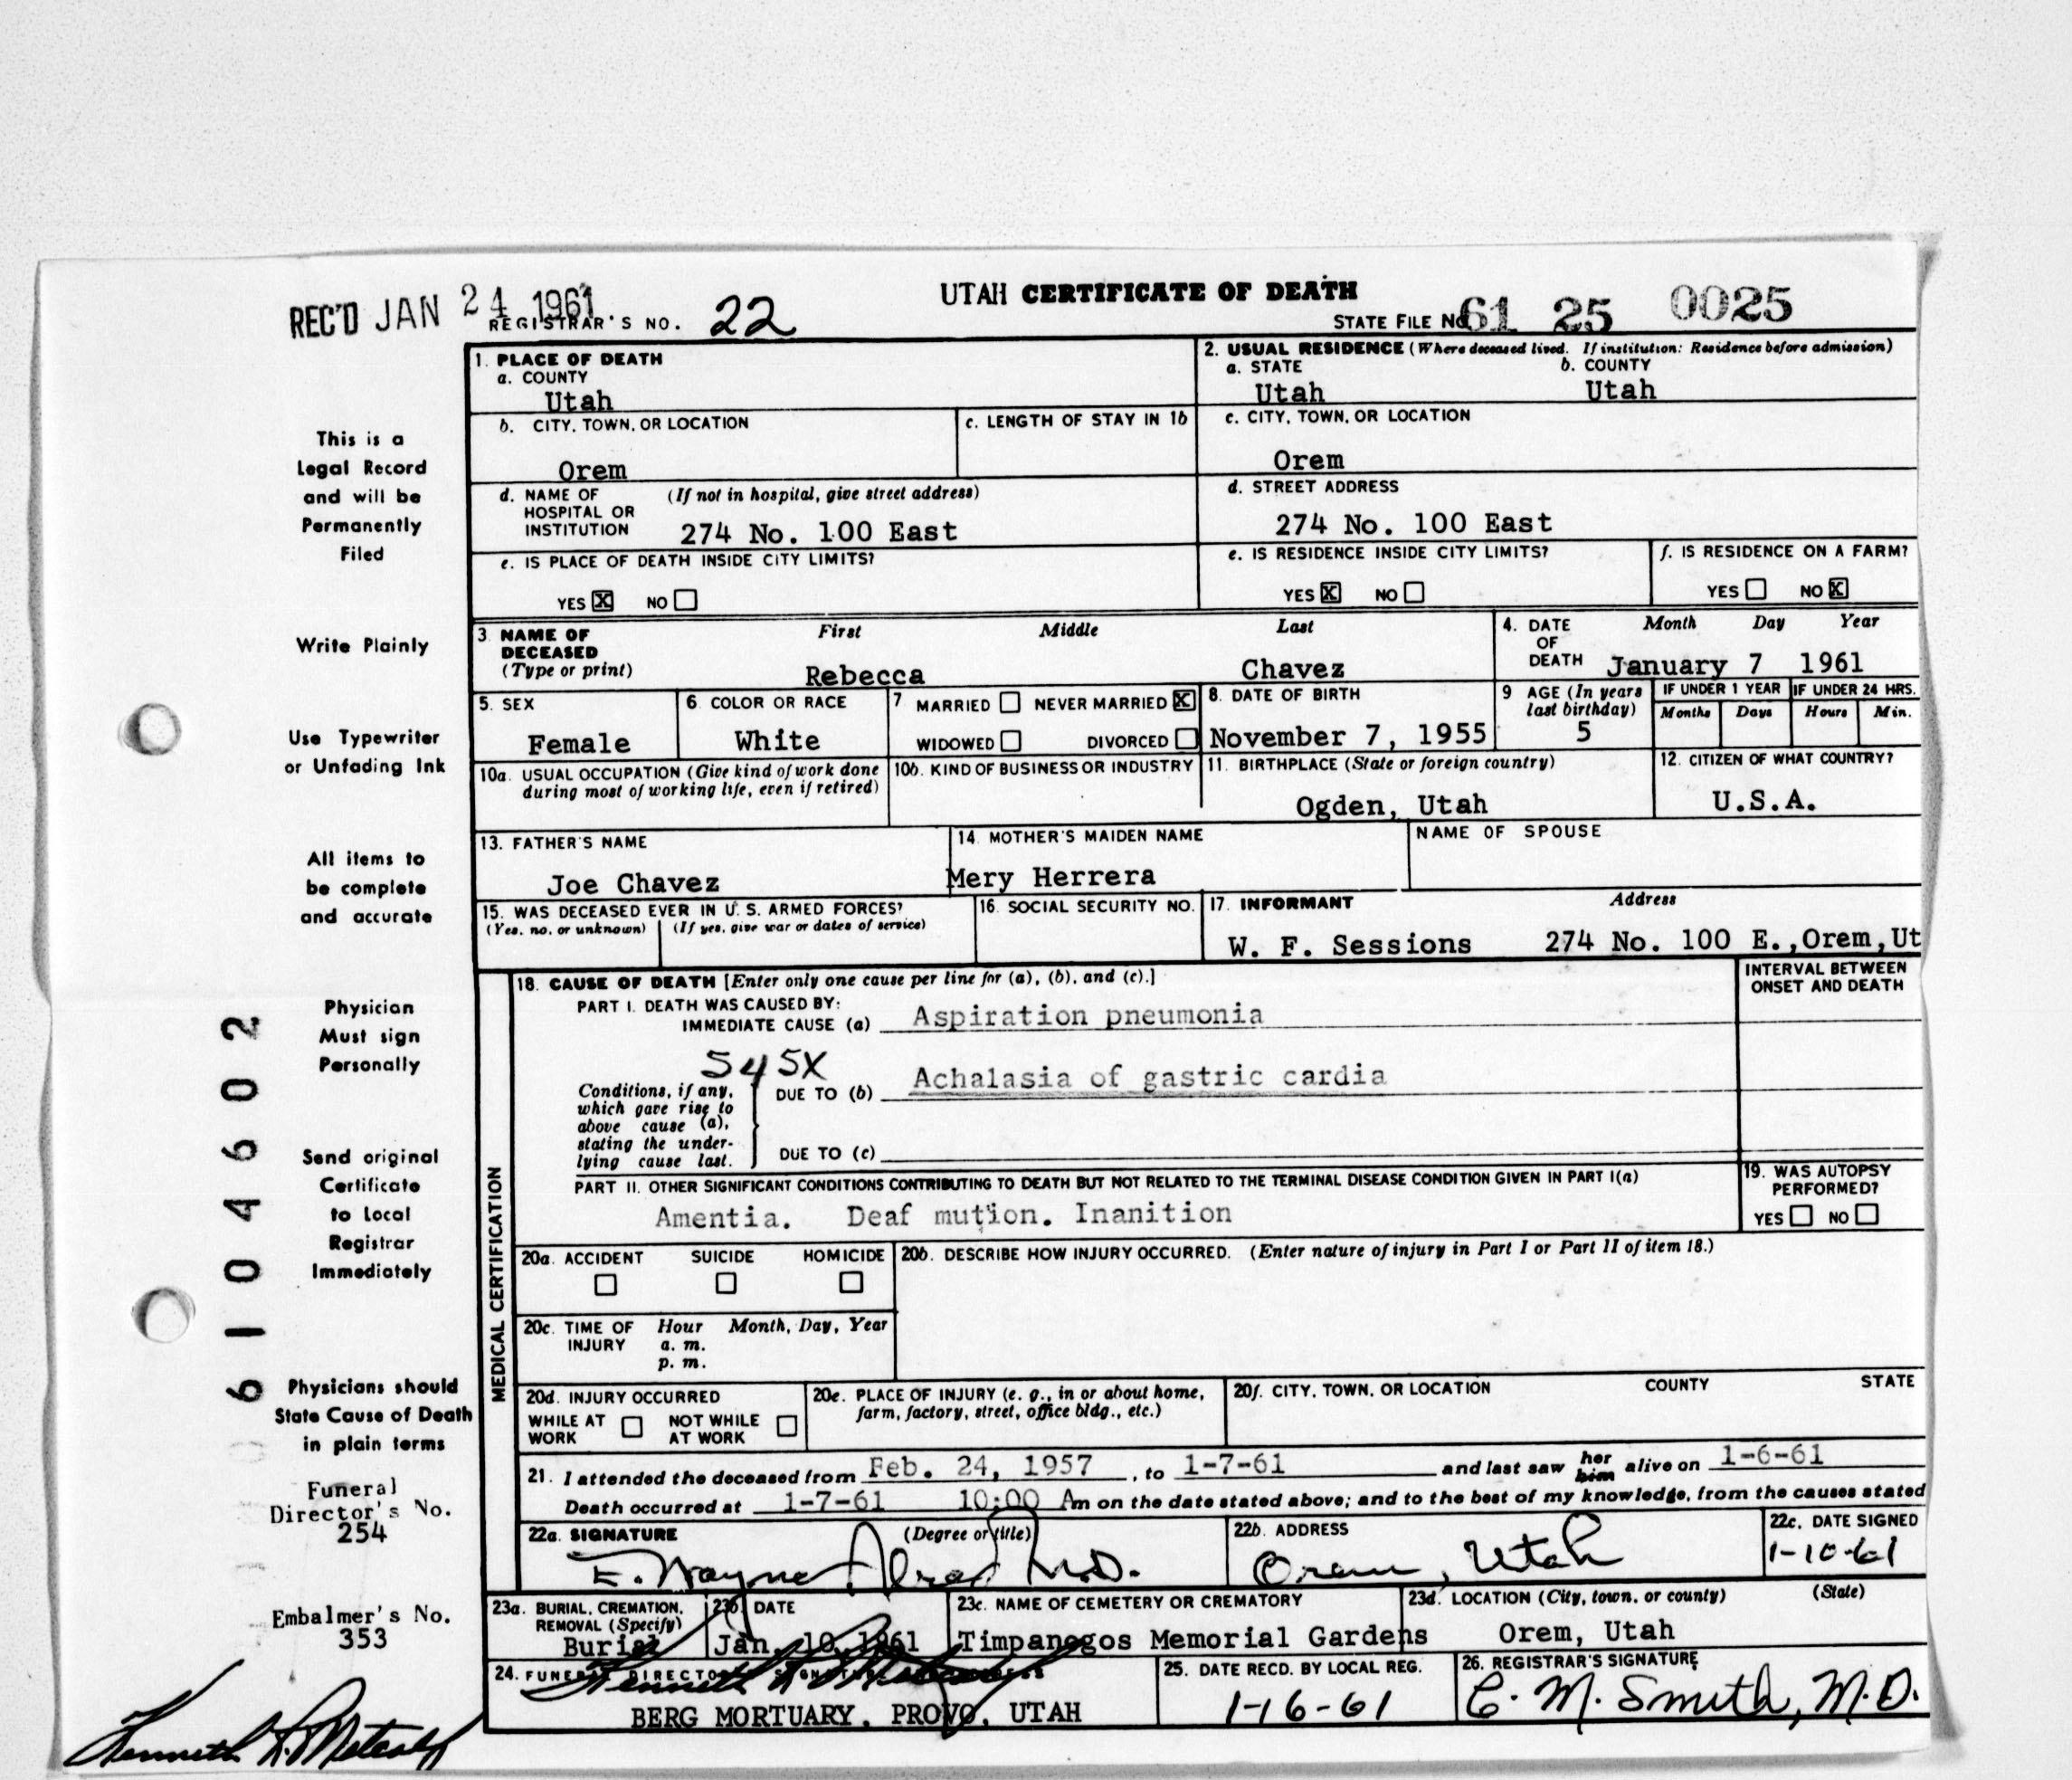 REC'D JAN 24 1961
REGISTRAR'S NO. 22
UTAH CERTIFICATE OF DEATH
STATE FILE NO. 61 25 0025
1. PLACE OF DEATH
a. COUNTY
Utah
2. USUAL RESIDENCE (Where deceased lived. If institution: Residence before admission)
a. STATE b. COUNTY
Utah Utah
b. CITY, TOWN, OR LOCATION
Orem
c. LENGTH OF STAY IN 1b
c. CITY, TOWN, OR LOCATION
Orem
d. NAME OF (If not in hospital, give street address)
HOSPITAL OR
INSTITUTION 274 No. 100 East
d. STREET ADDRESS
274 No. 100 East
e. IS PLACE OF DEATH INSIDE CITY LIMITS?
YES X NO
e. IS RESIDENCE INSIDE CITY LIMITS?
YES X NO
f. IS RESIDENCE ON A FARM?
YES NO X
3 NAME OF First Middle Last
DECEASED
(Type or print) Rebecca Chavez
4. DATE Month Day Year
OF
DEATH January 7 1961
5. SEX
Female
6. COLOR OR RACE
White
7 MARRIED NEVER MARRIED X
WIDOWED DIVORCED
8. DATE OF BIRTH
November 7, 1955
9 AGE (In years
last birthday)
5
IF UNDER 1 YEAR
Months Days
IF UNDER 24 HRS.
Hours Min.
10a. USUAL OCCUPATION (Give kind of work done
during most of working life, even if retired)
10b. KIND OF BUSINESS OR INDUSTRY
11. BIRTHPLACE (State or foreign country)
Ogden, Utah
12. CITIZEN OF WHAT COUNTRY?
U.S.A.
13. FATHER'S NAME
Joe Chavez
14. MOTHER'S MAIDEN NAME
Mery Herrera
NAME OF SPOUSE
15. WAS DECEASED EVER IN U. S. ARMED FORCES?
(Yes, no, or unknown) (If yes, give war or dates of service)
16. SOCIAL SECURITY NO.
17. INFORMANT Address
W. F. Sessions 274 No. 100 E.,Orem,Ut
MEDICAL CERTIFICATION
18. CAUSE OF DEATH [Enter only one cause per line for (a), (b), and (c).]
INTERVAL BETWEEN
ONSET AND DEATH
PART I. DEATH WAS CAUSED BY:
IMMEDIATE CAUSE (a) Aspiration pneumonia
545X
Conditions, if any,
which gave rise to
above cause (a),
stating the under-
lying cause last.
DUE TO (b) Achalasia of gastric cardia
DUE TO (c)
PART II. OTHER SIGNIFICANT CONDITIONS CONTRIBUTING TO DEATH BUT NOT RELATED TO THE TERMINAL DISEASE CONDITION GIVEN IN PART I(a)
Amentia. Deaf mution. Inanition
19. WAS AUTOPSY
PERFORMED?
YES NO
20a. ACCIDENT SUICIDE HOMICIDE
20b. DESCRIBE HOW INJURY OCCURRED. (Enter nature of injury in Part I or Part II of item 18.)
20c. TIME OF Hour Month, Day, Year
INJURY a. m.
p. m.
20d. INJURY OCCURRED
WHILE AT NOT WHILE
WORK AT WORK
20e. PLACE OF INJURY (e. g., in or about home,
farm, factory, street, office bldg., etc.)
20f. CITY, TOWN, OR LOCATION COUNTY STATE
21. I attended the deceased from Feb. 24, 1957, to 1-7-61 and last saw her him alive on 1-6-61
Death occurred at 1-7-61 10:00 Am on the date stated above; and to the best of my knowledge, from the causes stated
22a. SIGNATURE (Degree or title)
E. Wayne M.D.
22b. ADDRESS
Orem, Utah
22c. DATE SIGNED
1-10-61
23a. BURIAL, CREMATION,
REMOVAL (Specify)
Burial
23b. DATE
Jan. 10, 1961
23c. NAME OF CEMETERY OR CREMATORY
Timpanogos Memorial Gardens
23d. LOCATION (City, town, or county) (State)
Orem, Utah
24. FUNERAL DIRECTOR'S SIGNATURE
BERG MORTUARY, PROVO, UTAH
25. DATE RECD. BY LOCAL REG.
1-16-61
26. REGISTRAR'S SIGNATURE
C. M. Smith, M.D.
This is a
Legal Record
and will be
Permanently
Filed
Write Plainly
Use Typewriter
or Unfading Ink
All items to
be complete
and accurate
Physician
Must sign
Personally
Send original
Certificate
to Local
Registrar
Immediately
Physicians should
State Cause of Death
in plain terms
Funeral
Director's No.
254
Embalmer's No.
353
Kenneth L. Metcalf
6104602